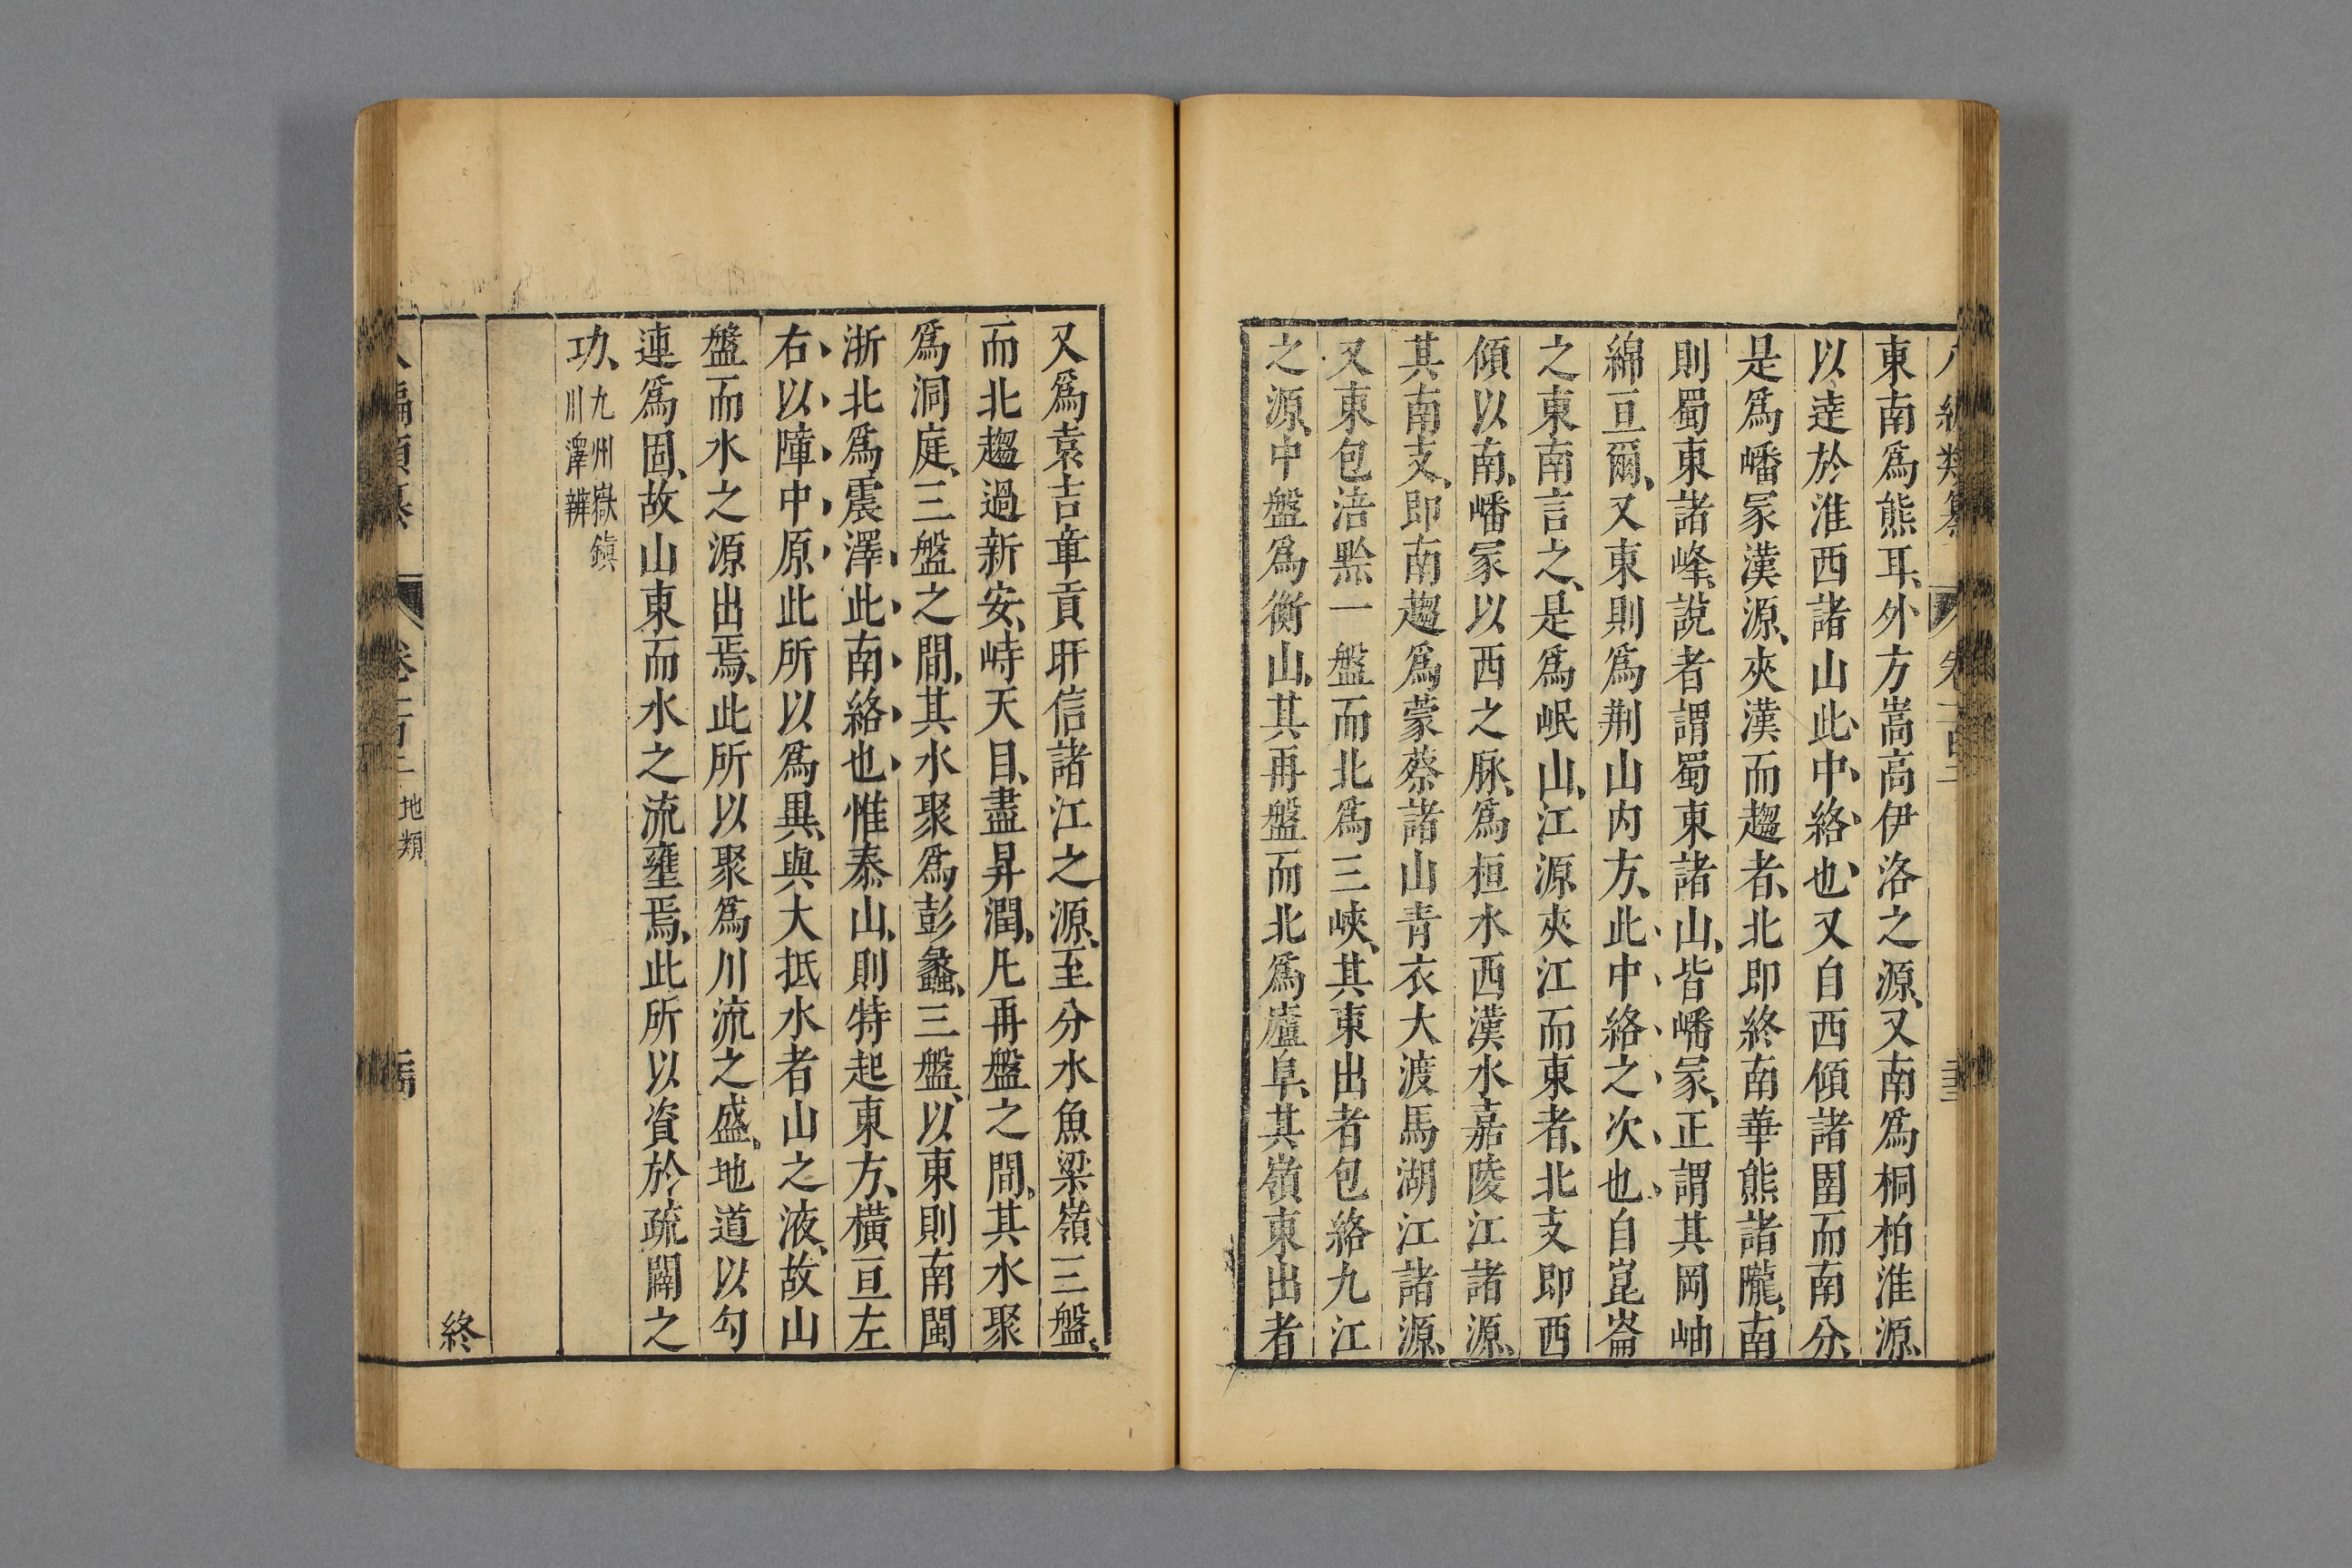 東南爲熊耳、外方嵩高伊洛之源、又南爲桐柏淮源、
以逹於淮西諸山此中絡也又自西傾諸圉而南分、
是爲嶓冢漢源、夾漢而趨者、北即終南華熊諸隴、南
則蜀東諸峰、說者謂蜀東諸山、皆嶓冢、正謂其岡岫
綿亘爾、又東則爲荆山内方、此中絡之次也自崑崙
之東南言之、是爲岷山、江源夾江而東者、北支即西
傾以南、嶓冢以西之脉、爲桓水西漢水嘉陵江諸源、
其南支、即南趨爲蒙蔡諸山青衣大渡馬湖江諸源、
又東包涪黔一盤而北爲三峽、其東出者包絡九江
之源、中盤爲衡山、其再盤而北爲廬阜、其嶺東出者
又爲袁吉章貢盱信諸江之源、至分水魚梁嶺三盤、
而北趨過新安、峙天目、盡昇潤、凡再盤之間、其水聚
爲洞庭、三盤之間、其水聚爲彭蠡、三盤、以東則南閩
浙北爲震澤、此南絡也惟泰山、則特起東方、橫亘左
右以障中原此所以爲異、與大抵水者山之液、故山
盤而水之源出焉、此所以聚爲川流之盛、地道以勾
連爲固、故山東而水之流壅焉、此所以資於疏闢之
功、九州嶽鎮
川澤辨
終
地類